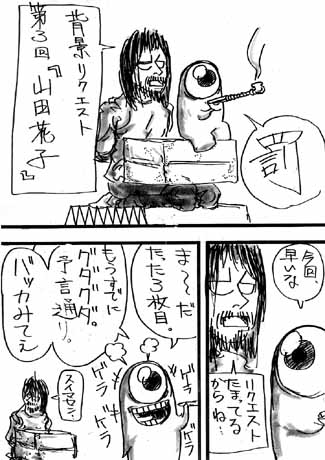 背景リクエスト
第3回『山田花子』
罰
今回、
早いな
リクエスト
たまってる
からね…
ま〜だ
たった3枚目。
もうすでに
グダグダ。
予言通り。
バッカみてぇ
ゲラ
ゲラ
ゲラ
ゲラ
スイマセン…